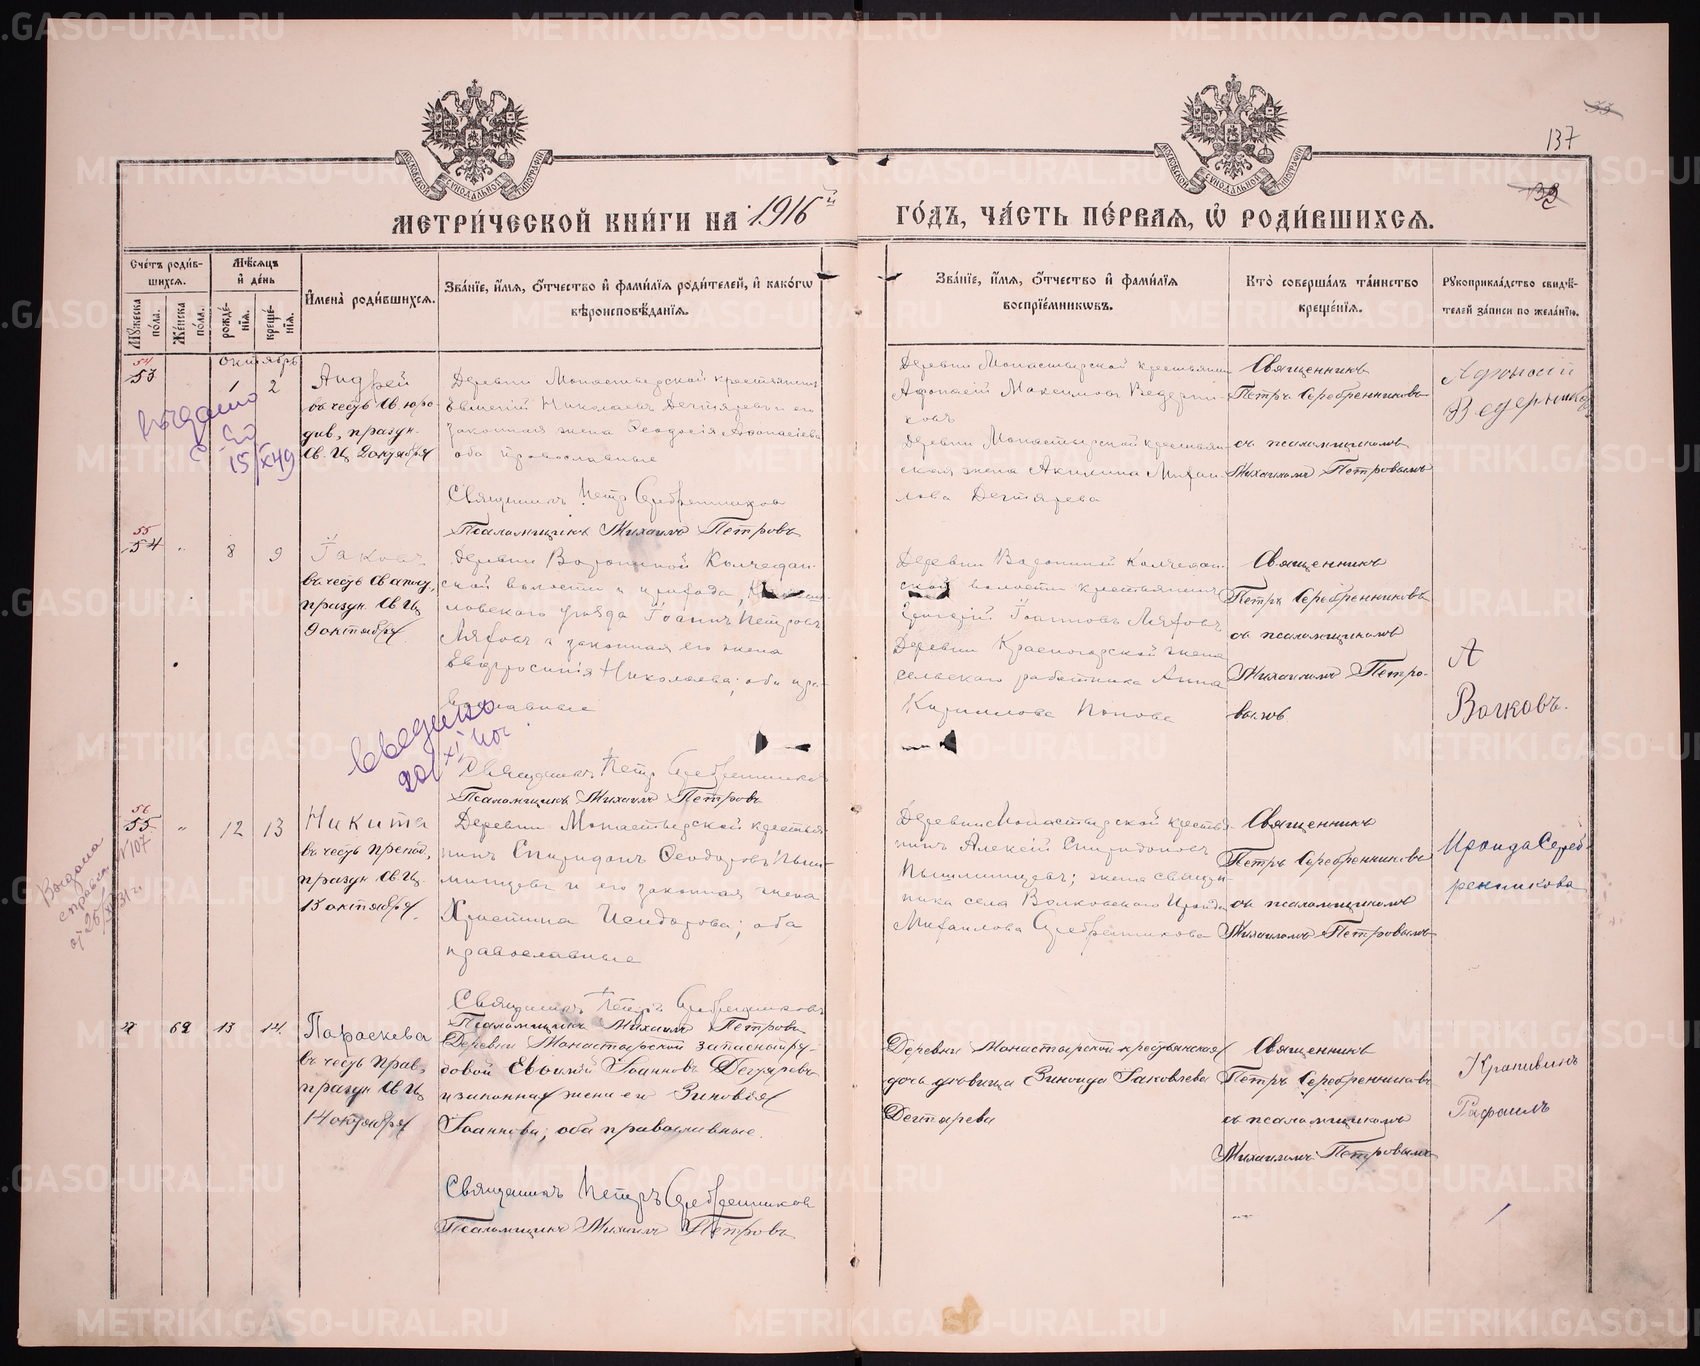 137
МЕТРИ́ЧЕСКОЙ КНИ́ГИ НА 1916й ГО́ДЪ, ЧА́СТЬ ПЕ́РВАЯ, Ѡ РОДИ́ВШИХСЯ.
Сче́тъ роди́в-
шихся.
Мѹжеска
по́ла.
Же́нска
по́ла.
Мѣ́сяцъ
и́ де́нь
рожде́-
нія.
креще́-
нія.
И҆мена̀ роди́вшихся.
Зва́ніе, и҆́мя, ѻ҆́тчество и҆ фами́лія роди́телей, и҆ како́гѡ
вѣроисповѣ́данія.
Зва́ніе, и҆́мя, ѻ҆́тчество и҆ фами́лія
воспріе́мниковъ.
Кто̀ соверша́лъ та́инство
креще́нія.
Рꙋкоприкла́дство свидѣ́-
телей за́писи по жела́нію.
октябрь
54
53
1
2
Андрей
въ честь Св. юро-
див, праздн.
Св. Ц. 2 октября
Деревни Монастырской крестьянинъ
Евгеній Николаевъ Дегтяревъ и его
законная жена Ѳеодосія Аѳонасіева
оба православные
Священникъ Петръ Серебренниковъ
Псаломщикъ Михаилъ Петровъ
Деревни Монастырской крестьянинъ
Афонасій Максимовъ Ведерни-
ковъ
Деревни Монастырской крестьян-
ская жена Акилина Михаи-
лова Дегтярева
Священникъ
Петръ Серебренниковъ
съ псаломщикомъ
Михаиломъ Петровымъ
Афонасій
Ведерников
выдано
15/X49
55
54
"
8
9
Іаковъ
въ честь Св апост,
праздн. Св Ц.
9 октября
Деревни Водолиной Колчедан-
ской волости и прихода,
ловского уѣзда Іоаннъ Петровъ
Ляховъ и законная его жена
Евфросинія Николаева; оба пра-
вославные
Священникъ Петръ Серебренниковъ
Псаломщикъ Михаилъ Петровъ
Деревни Водолиной Колчедан-
ской волости крестьянинъ
Григорій Іоанновъ Ляховъ
Деревни Красногорской жена
сельскаго работника Анна
Кириллова Попова
Священникъ
Петръ Серебренниковъ
съ псаломщикомъ
Михаиломъ Петро-
вымъ
А
Волковъ.
Сведено
20/XI 40г
56
55
"
12
13
Никита
въ честь препод,
праздн Св Ц.
13 октября.
Деревни Монастырской крестья-
нинъ Спиридонъ Ѳеодоровъ Пыш-
минцевъ и его законная жена
Христина Исидорова; оба
православные
Священникъ Петръ Серебренниковъ
Псаломщикъ Михаилъ Петровъ
Деревни Монастырской крестья-
нинъ Алексій Спиридоновъ
Пышминцевъ; жена священ-
ника села Волковскаго Ираида
Михаилова Серебренникова
Священникъ
Петръ Серебренниковъ
съ псаломщикомъ
Михаиломъ Петровымъ
Ираида Сереб-
ренникова
Выдана
справка №107
от 25/ 31 г.
"
62
13
14.
Параскева
въ честь Прав,
праздн Св Ц.
14 октября
Деревни Монастырской запасный ря-
довой Евдокій Іоанновъ Дегтяревъ
и законная жена его Зиновія
Іоаннова; оба православные.
Священникъ Петръ Серебренниковъ
Псаломщикъ Михаилъ Петровъ
Деревни Монастырской крестьянская
дочь дѣвица Зинаида Іаковлева
Дегтярева
Священникъ
Петръ Серебренниковъ
съ псаломщикомъ
Михаиломъ Петровымъ
Крапивинъ
Рафаилъ